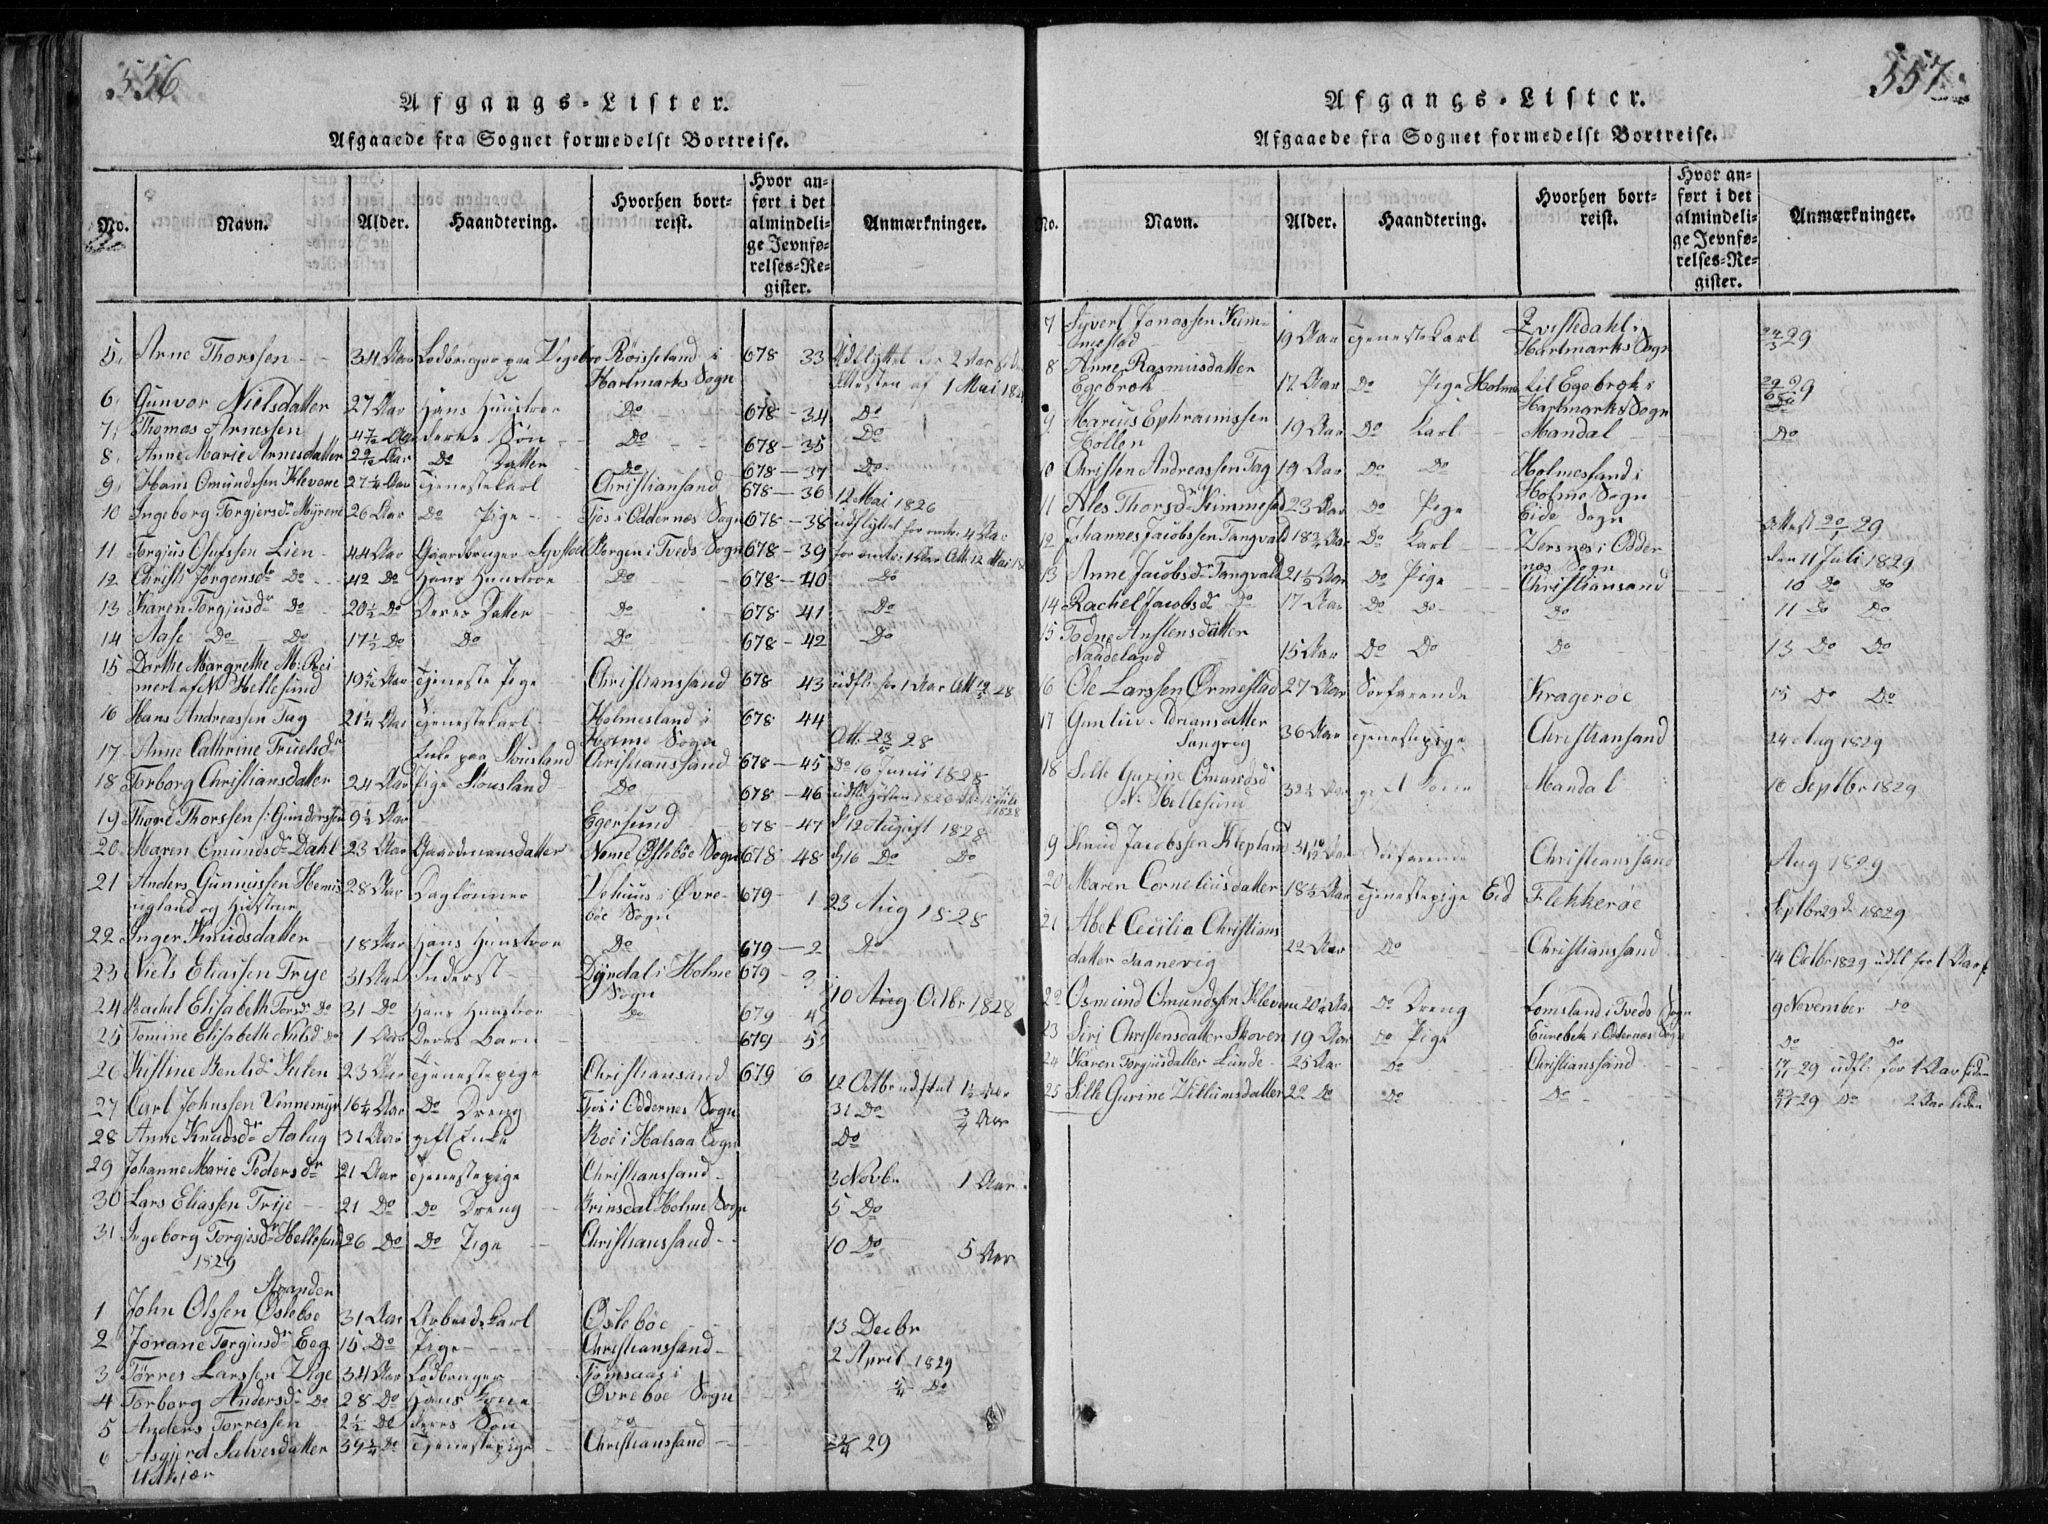 556
Afgangs-Lister.
Afgaaede fra Sognet formedelst Bortreise.
No. Navn. Alder. Haandtering. Hvorhen bortreist. Hvor anført i det almindelige Jevnførelses-Register. Anmærkninger.
5. Arne Thorssen 34 Aar Lodbruger paa Vigebo Røisseland i Hartmarks Sogn 678-33 Udflyttet for 2 Aar siden Attesten af 1 Mai
6. Gunvor Nielsdatter 27 Aar Hans Huustroe Do 678-34 Do
7. Thomas Arnessen 4 7/12 Aar deres Søn Do 678-35 Do
8. Anne Marie Arnesdatter 2 9/12 Aar Do Datter Do 678-37 Do
9. Hans Omundssen Klevene 27 1/4 Aar Tjenestekarl Christiansand 678-36 12 Mai 1826
10 Ingeborg Torgjersdr Myrene 26 Aar Do Pige Tjos i Oddernes Sogn 678-38 udflyttet for 4 Aar
11 Torgius Olufssen Lien 44 Aar Gaardbruger Borgen i Tveds Sogn 678-39 for 1 Aar Att: 12 Mai
12 Christi Jørgensdr Do 42 Do Hans Huustroe Do 678-40 Do
13 Karen Torgjusdr Do 20 1/2 Do Deres Datter Do 678-41 Do
14 Aase Do Do 17 1/2 Do Do Do 678-42 Do
15 Dorthe Margrethe M: Reimert af N. Hellesund 19 5/12 Aar Tjeneste Pige Christianssand 678 43 udfl: for 1 Aar Att 19/5 28
16 Hans Andreassen Tag 21 1/4 Aar Tjenestekarl Holmesland i Holme Sogn 678-44 Att. 23/5 28
17. Anne Cathrine Truelsdr Enke paa Stousland Christianssand 678-45 Do 16 Junii 1828
18 Torborg Christiansdatter 24 Aar Pige Stousland Do 678-46 udfl. Høsten 1826 Juli 1828
19 Thore Thorssen 9 1/2 Aar Egersund 678-47 12 August 1828
20. Maren Omundsdr Dahl 23 Aar Gaardmansdatter Nome Øslebøe Sogn 678-48 16 Do Do
21 Anders Gunnussen og Hustroe 28 Aar Daglønner Vehuus i Øvrebøe Sogn 679-1 23 Aug 1828
22 Inger Knudsdatter 18 Aar Hans Huustroe Do 679-2 Do
23 Niels Eliassen Trye 31 Aar Inderst Døndal i Holme Sogn 679-3 10 Aug Octbr 1828
24 Rachel Elisabeth Torsdr Do 31 Do Hans Huustroe Do 679-4
25 Tomine Elisabeth Nielsd Do 1 Aar Deres Barn 679 5
26 Kistine Bentsd Kilen 23 Aar Tjenestepige Christiansand 679 6 12 Octbr udflyt 1 1/2 Aar
27 Carl Johnssen Vennemyr 16 1/4 Aar Do Dreng Tjos i Oddernes Sogn 31 Do 3/4 Aar
28 Anne Knudsdr Aalug 31 Aar gift Enke Roe i Halsaa Sogn Do
29 Johanne Marie Pedersdr 21 Aar Tjenestepige Christianssand 3 Novbr 1 Aar
30 Lars Eliassen Trije 21 Do Do Dreng Brinsdal Holme Sogn 5 Do
31 Ingeborg Torgjusdr Hellesund 26 Do Do Pige Christianssand 10 Do 5 Aar
1829
1 John Olssen Øslebøe Stranden 31 Aar Arbeidskarl Øslebøe 13 Decbr
2 Jorane Torgjusdr Eeg 15 Do Pige Christianssand 2 April 1829
3 Tørres Larssen Vige 34 Aar Lodbruger Tjomsaas i Øvrebøe Sogn 5/4 Do
4 Torborg Andersdr Do 28 Do Hans Kone
5 Anders Torressen 2 1/2 Do deres Søn Do
6 Asgjerd Salvesdatter Udkjær 39 3/4 Do Tjenestepige Christianssand 22/4 29
557
Afgangs-Lister.
Afgaaede fra Sognet formedelst Bortreise.
No. Navn. Alder. Haandtering. Hvorhen bortreist. Hvor anført i det almindelige Jevnførelses-Register. Anmærkninger.
7 Syvert Jonassen Kimmestad 19 Aar Tjenestekarl Qvistedahl i Hartmarks Sogn 24/3 29
8 Anne Rasmusdatter Egebrok 17 Aar Do Pige Holme til Egebrok i Hartmarks Sogn
9 Marcus Ephraimssen Hollen 19 Aar Do Karl Mandal Do
10 Christen Andreassen Tag 19 Aar Do Do Holmesland i Holme Sogn
11 Ales Thorsdr Kimmestad 23 Aar Do Pige Eide Sogn Attest 20/1 29
12 Johannes Jacobssen Tangvald 18 3/4 Aar Do Karl Versnes i Oddernes Sogn den 11 Juli 1829
13 Anne Jacobsdr Tangvald 21 1/2 Aar Do Pige Christiansand 10 Do Do
14 Rachel Jacobsdr Do 17 Aar Do Do Do 11 Do Do
15 Todne Anstensdatter Naadeland 15 Aar Do Do Do 13 Do Do
16 Ole Larssen Ørmestad 27 Aar Søefarende Kragerøe 15 Do Do
17 Gunluv Adriansdatter Langvig 36 Aar Tjenestepige Christianssand 24 Aug 1829
18 Silke Gurine Omundsdr N: Hellesund 32 1/2 Aar gift Kone Mandal 10 Septbr 1829
9 Knud Jacobssen Klepland 31 10/12 Aar Søefarende Christianssand Aug 1829
20 Maren Corneliusdatter 18 1/2 Aar Tjenestepige Eid Flekkerøe Septbr 29d 1829
21 Abel Cecilia Christiansdatter Taanevig 22 Aar Do Christianssand 14 Octbr 1829 udfl for 1 Aar
22 Osmund Omundsen Klevene 20 1/4 Aar Do Dreng Lomsland i Tveds Sogn 9 November Do
23 Siri Christensdatter Skoven 19 Aar Do Pige Eurebek i Odernes Sogn Do Do
24 Karen Torgiusdatter Lunde 25 Aar Do Christianssand 17/11 29 udfl: for 1 Aar siden
25 Silke Gurine Villumsdatter 22 Do Do Do 27/11 29 Do 2 Aar siden